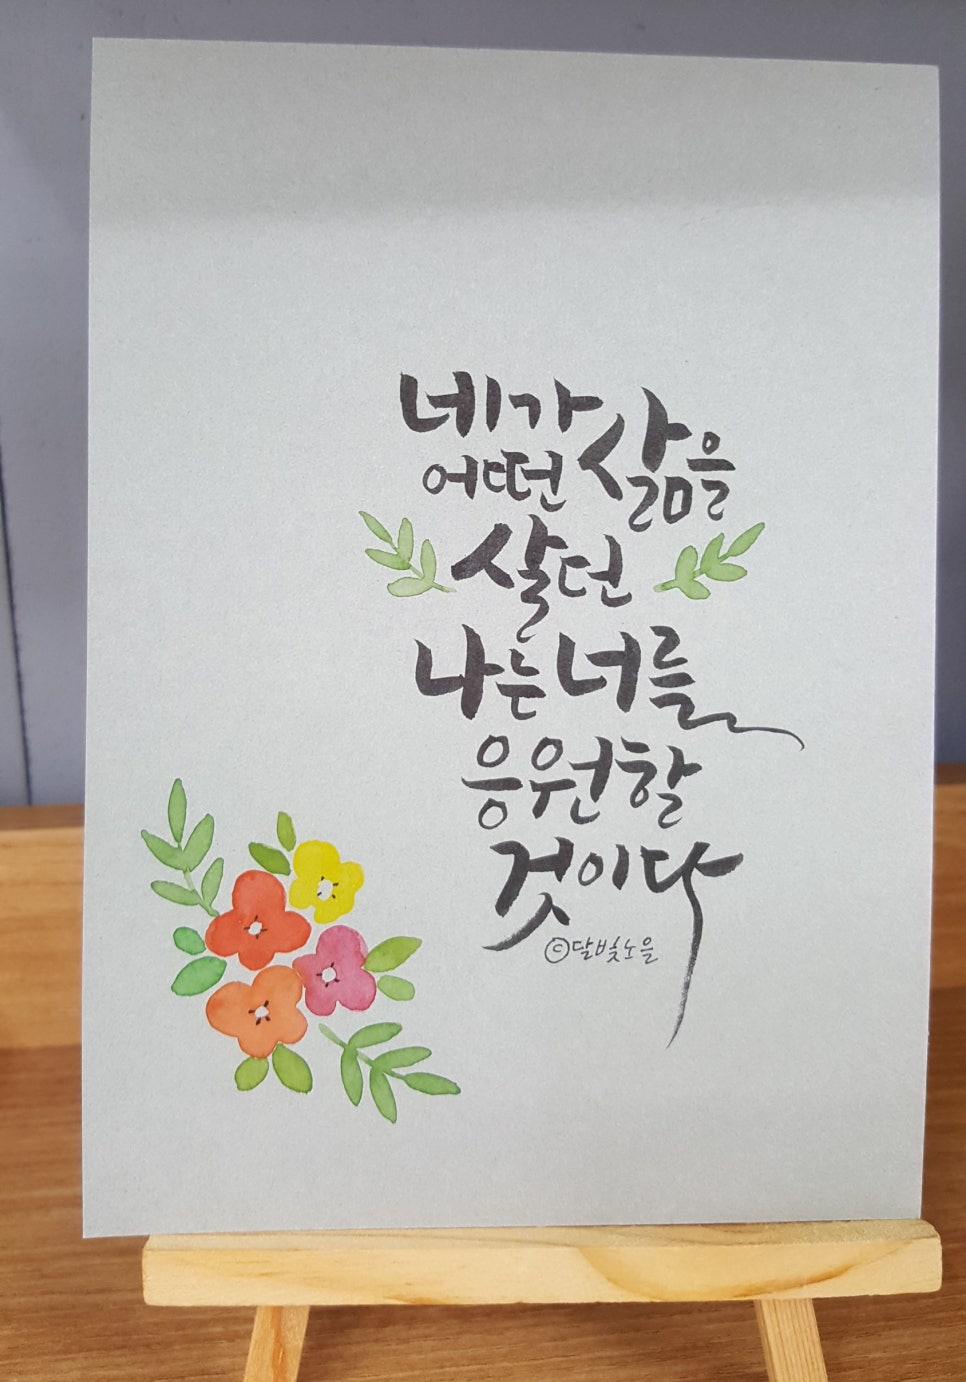 네가
어떤 삶을
살던
나는 너를
응원할
것이다
ⓒ달빛노을